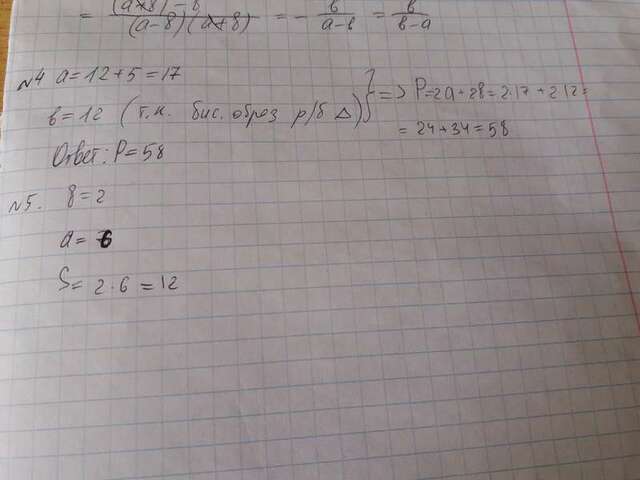 = (a+b) - b / (a-b)(a+b) = - b/(a-b) = b/(b-a)
№4 a=12+5=17
b=12 (т.к. бис. образ р/б △) } => P=2a+2b=2·17+2·12=
= 24+34=58
Ответ: P=58
№5. b=2
a=6
S= 2·6=12